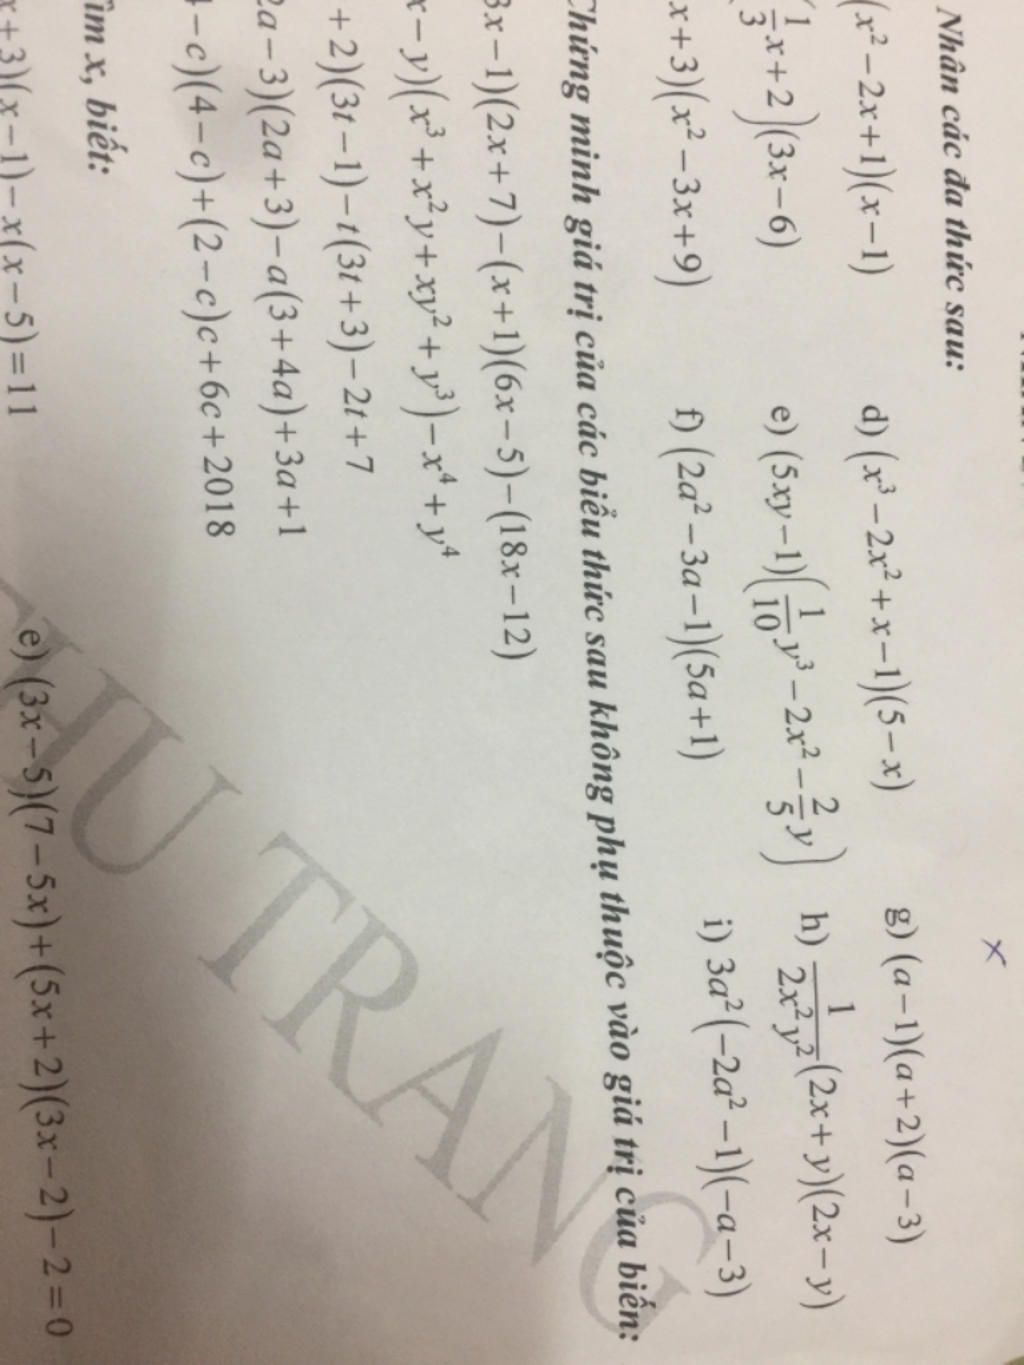 Nhân các đa thức sau:
(x² − 2x + 1)(x − 1) d) (x³ − 2x² + x − 1)(5 − x) g) (a − 1)(a + 2)(a − 3)
(1/3 x + 2)(3x − 6) e) (5xy − 1)(1/10 y³ − 2x² − 2/5 y) h) 1/2x²y² (2x + y)(2x − y)
x + 3)(x² − 3x + 9) f) (2a² − 3a − 1)(5a + 1) i) 3a²(−2a² − 1)(−a − 3)
Chứng minh giá trị của các biểu thức sau không phụ thuộc vào giá trị của biến:
3x − 1)(2x + 7) − (x + 1)(6x − 5) − (18x − 12)
x − y)(x³ + x²y + xy² + y³) − x⁴ + y⁴
+ 2)(3t − 1) − t(3t + 3) − 2t + 7
2a − 3)(2a + 3) − a(3 + 4a) + 3a + 1
− c)(4 − c) + (2 − c)c + 6c + 2018
ìm x, biết:
x + 3)(x − 1) − x(x − 5) = 11 e) (3x − 5)(7 − 5x) + (5x + 2)(3x − 2) − 2 = 0
THU TRANG